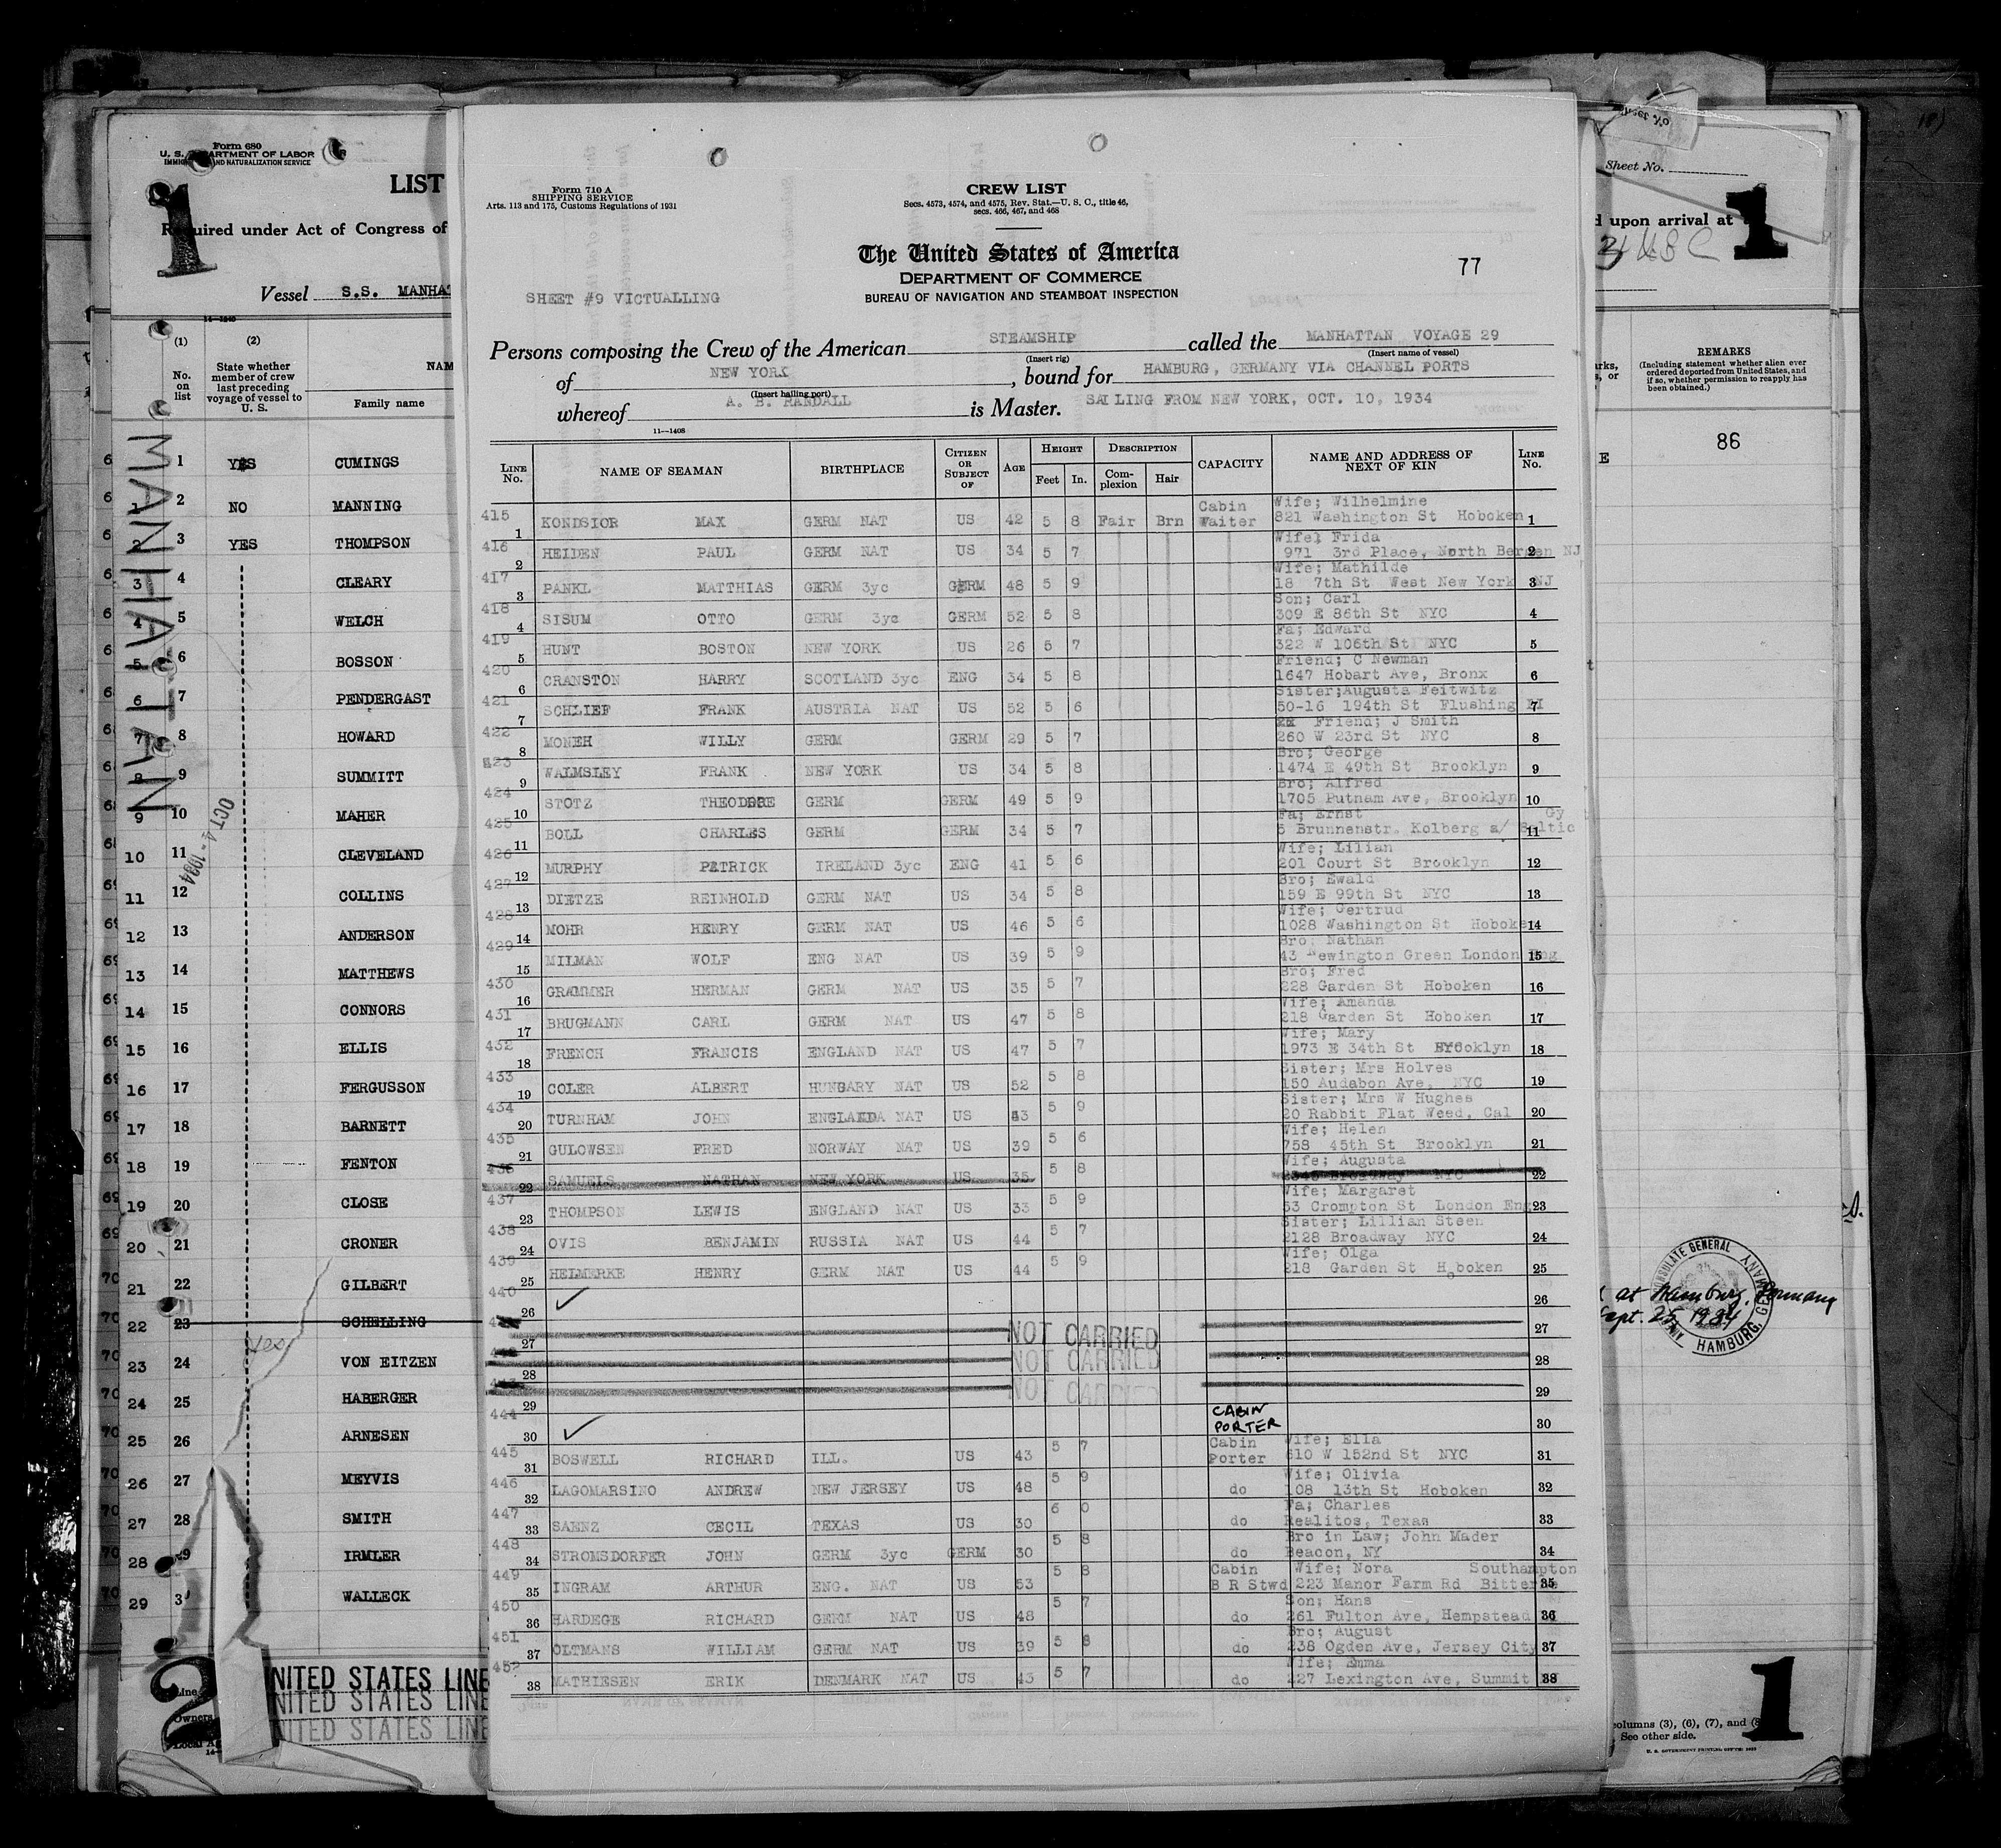 Form 680
U. S. DEPARTMENT OF LABOR
IMMIGRATION AND NATURALIZATION SERVICE
1
LIST
Required under Act of Congress of
Vessel S.S. MANHAT
(1) (2)
No. on list
State whether member of crew last preceding voyage of vessel to U. S.
NAM
Family name
MANHATTAN
OCT 4 - 1934
1 YES CUMINGS
1 2 NO MANNING
2 3 YES THOMPSON
3 4 CLEARY
4 5 WELCH
5 6 BOSSON
6 7 PENDERGAST
7 8 HOWARD
8 9 SUMMITT
9 10 MAHER
10 11 CLEVELAND
11 12 COLLINS
12 13 ANDERSON
13 14 MATTHEWS
14 15 CONNORS
15 16 ELLIS
16 17 FERGUSSON
17 18 BARNETT
18 19 FENTON
19 20 CLOSE
20 21 CRONER
21 22 GILBERT
22 23 SCHELLING
yes
23 24 VON EITZEN
24 25 HABERGER
25 26 ARNESEN
26 27 MEYVIS
27 28 SMITH
28 29 IRMLER
29 30 WALLECK
2
NITED STATES LINE
NITED STATES LINE
NITED STATES LINE
Line
Owners
Local A
Form 710 A
SHIPPING SERVICE
Arts. 113 and 175, Customs Regulations of 1931
CREW LIST
Secs. 4573, 4574, and 4575, Rev. Stat.—U. S. C., title 46,
secs. 466, 467, and 468
The United States of America
DEPARTMENT OF COMMERCE
BUREAU OF NAVIGATION AND STEAMBOAT INSPECTION
77
SHEET #9 VICTUALLING
Persons composing the Crew of the American STEAMSHIP called the MANHATTAN VOYAGE 29
(Insert rig) (Insert name of vessel)
of NEW YORK, bound for HAMBURG, GERMANY VIA CHANNEL PORTS
(Insert hailing port)
whereof A. B. RANDALL is Master. SAILING FROM NEW YORK, OCT. 10, 1934
11—1408
LINE No. NAME OF SEAMAN BIRTHPLACE CITIZEN OR SUBJECT OF AGE HEIGHT Feet In. DESCRIPTION Complexion Hair CAPACITY NAME AND ADDRESS OF NEXT OF KIN LINE No.
Cabin Wife; Wilhelmine
415 1 KONDSIOR MAX GERM NAT US 42 5 8 Fair Brn Waiter 821 Washington St Hoboken 1
Wife; Frida
416 2 HEIDEN PAUL GERM NAT US 34 5 7 971 3rd Place, North Bergen NJ 2
Wife; Mathilde
417 3 PANKL MATTHIAS GERM 3yc GERM 48 5 9 18 7th St West New York NJ 3
Son; Carl
418 4 SISUM OTTO GERM 3yc GERM 52 5 8 309 E 86th St NYC 4
Fa; Edward
419 5 HUNT BOSTON NEW YORK US 26 5 7 322 W 106th St NYC 5
Friend; C Newman
420 6 CRANSTON HARRY SCOTLAND 3yc ENG 34 5 8 1647 Hobart Ave, Bronx 6
Sister;Augusta Feitwitz
421 7 SCHLIEF FRANK AUSTRIA NAT US 52 5 6 50-16 194th St Flushing LI 7
Friend; J Smith
422 8 MONEH WILLY GERM GERM 29 5 7 260 W 23rd St NYC 8
Bro; George
423 9 WALMSLEY FRANK NEW YORK US 34 5 8 1474 E 49th St Brooklyn 9
Bro; Alfred
424 10 STOTZ THEODORE GERM GERM 49 5 9 1705 Putnam Ave, Brooklyn 10
Fa; Ernst Gy
425 11 BOLL CHARLES GERM GERM 34 5 7 5 Brunnenstr. Kolberg a/ Baltic 11
Wife; Lilian
426 12 MURPHY PATRICK IRELAND 3yc ENG 41 5 6 201 Court St Brooklyn 12
Bro; Ewald
427 13 DIETZE REINHOLD GERM NAT US 34 5 8 159 E 99th St NYC 13
Wife; Gertrud
428 14 MOHR HENRY GERM NAT US 46 5 6 1028 Washington St Hoboken 14
Bro; Nathan
429 15 MILMAN WOLF ENG NAT US 39 5 9 43 Newington Green London Eng 15
Bro; Fred
430 16 GRAMMER HERMAN GERM NAT US 35 5 7 228 Garden St Hoboken 16
Wife; Amanda
431 17 BRUGMANN CARL GERM NAT US 47 5 8 218 Garden St Hoboken 17
Wife; Mary
432 18 FRENCH FRANCIS ENGLAND NAT US 47 5 7 1973 E 34th St Brooklyn 18
Sister; Mrs Holves
433 19 COLER ALBERT HUNGARY NAT US 52 5 8 150 Audabon Ave, NYC 19
Sister; Mrs W Hughes
434 20 TURNHAM JOHN ENGLAND NAT US 43 5 9 20 Rabbit Flat Weed, Cal 20
Wife; Helen
435 21 GULOWSEN FRED NORWAY NAT US 39 5 6 758 45th St Brooklyn 21
Wife; Augusta
436 22 SAMUELS NATHAN NEW YORK US 35 5 8 2345 Broadway NYC 22
Wife; Margaret
437 23 THOMPSON LEWIS ENGLAND NAT US 33 5 9 53 Crompton St London Eng 23
Sister; Lillian Steen
438 24 OVIS BENJAMIN RUSSIA NAT US 44 5 7 2128 Broadway NYC 24
Wife; Olga
439 25 HELMERKE HENRY GERM NAT US 44 5 9 218 Garden St Hoboken 25
440 26 ✓ 26
27 NOT CARRIED 27
28 NOT CARRIED 28
29 NOT CARRIED 29
444 30 ✓ CABIN PORTER 30
Cabin Wife; Ella
445 31 BOSWELL RICHARD ILL. US 43 5 7 Porter 610 W 152nd St NYC 31
Wife; Olivia
446 32 LAGOMARSINO ANDREW NEW JERSEY US 48 5 9 do 108 13th St Hoboken 32
Fa; Charles
447 33 SAENZ CECIL TEXAS US 30 6 0 do Realitos, Texas 33
Bro in Law; John Mader
448 34 STROMSDORFER JOHN GERM 3yc GERM 30 5 8 do Beacon, NY 34
Cabin Wife; Nora Southampton
449 35 INGRAM ARTHUR ENG. NAT US 53 5 8 B R Stwd 223 Manor Farm Rd 35
Son; Hans
450 36 HARDEGE RICHARD GERM NAT US 48 5 7 do 261 Fulton Ave, Hempstead 36
Bro; August
451 37 OLTMANS WILLIAM GERM NAT US 39 5 8 do 238 Ogden Ave, Jersey City 37
Wife; Emma
452 38 MATHIESEN ERIK DENMARK NAT US 43 5 7 do 227 Lexington Ave, Summit 38
Sheet No.
1
d upon arrival at
REMARKS
(Including statement whether alien ever ordered deported from United States, and if so, whether permission to reapply has been obtained.)
86
E
at Hamburg, Germany
Sept. 25, 1934
CONSULATE GENERAL
HAMBURG, GERMANY
columns (3), (6), (7), and (8
See other side.
U. S. GOVERNMENT PRINTING OFFICE
1